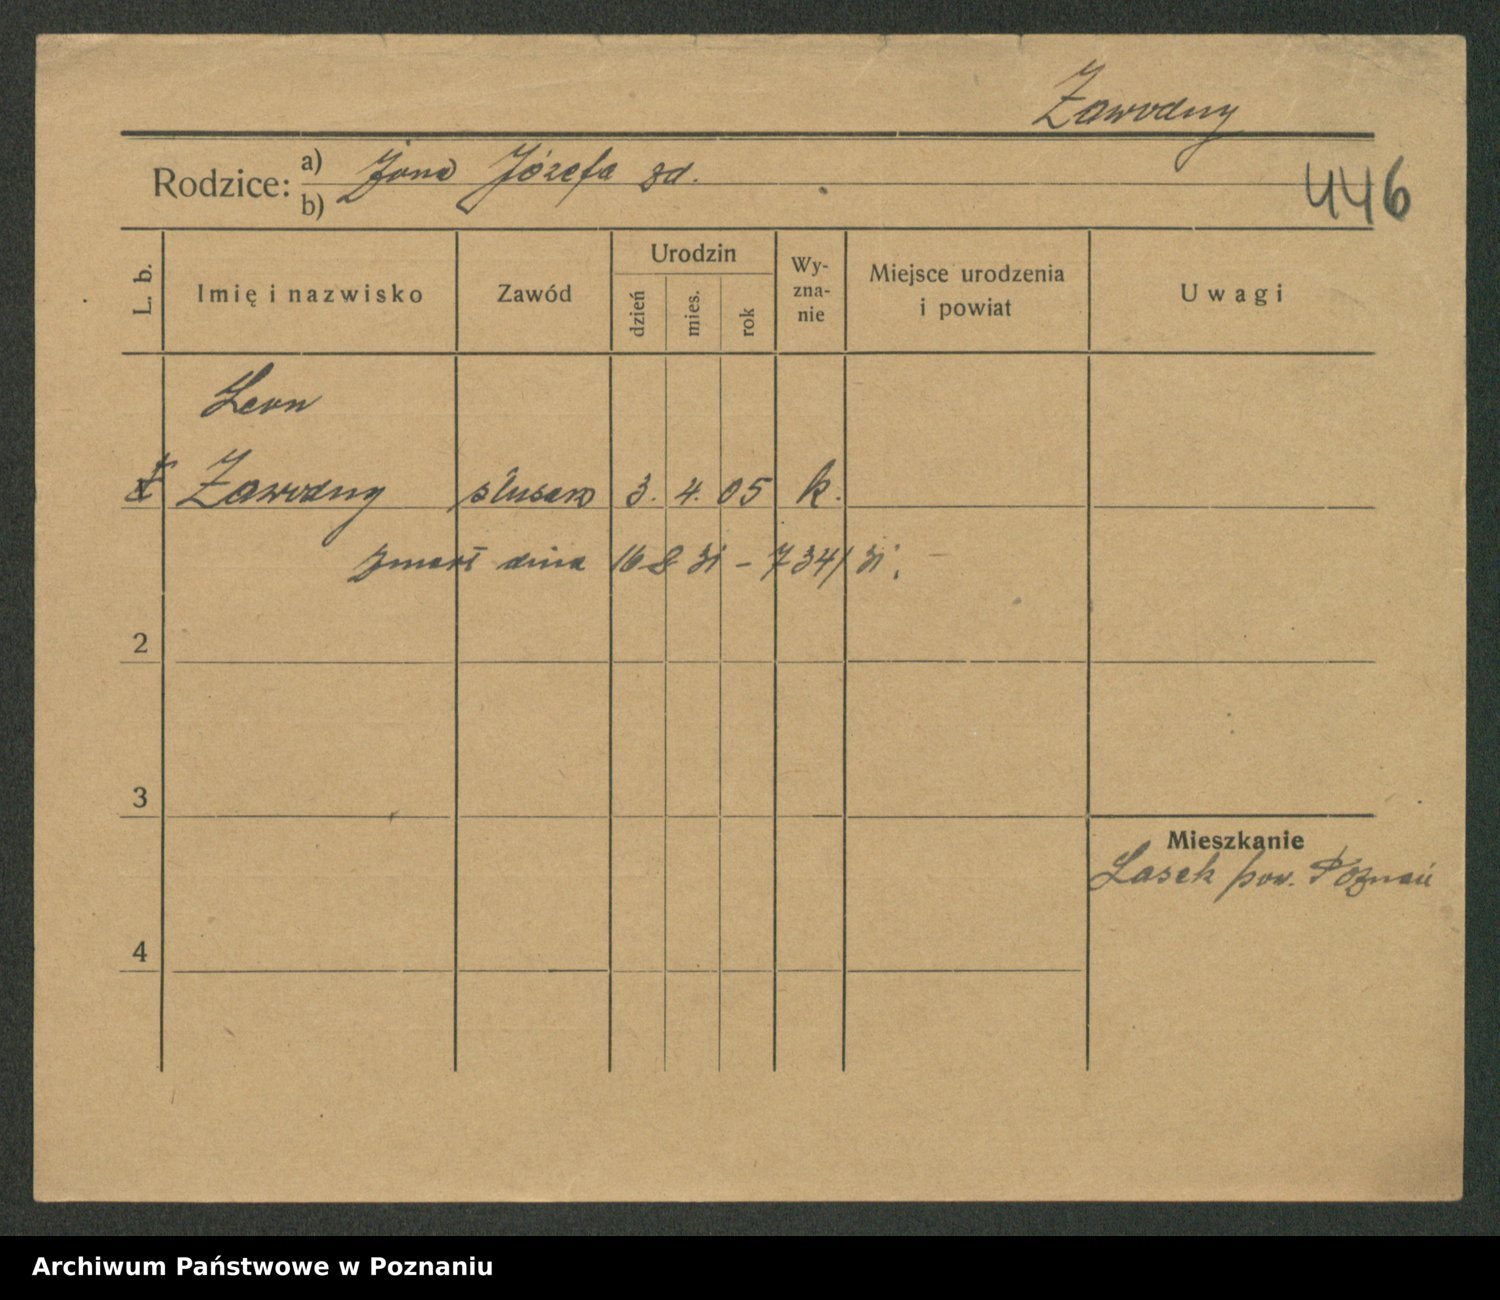 Zawodny
Rodzice: a) Żona Józefa zd.
b)
446
L. b. Imię i nazwisko Zawód Urodzin dzień mies. rok Wy-zna-nie Miejsce urodzenia i powiat Uwagi
Leon
Zawodny ślusarz 3. 4. 05 k.
zmarł dnia 16 8 31 - 734/31.
2
3
Mieszkanie
Lasek pow. Poznań
4
Archiwum Państwowe w Poznaniu